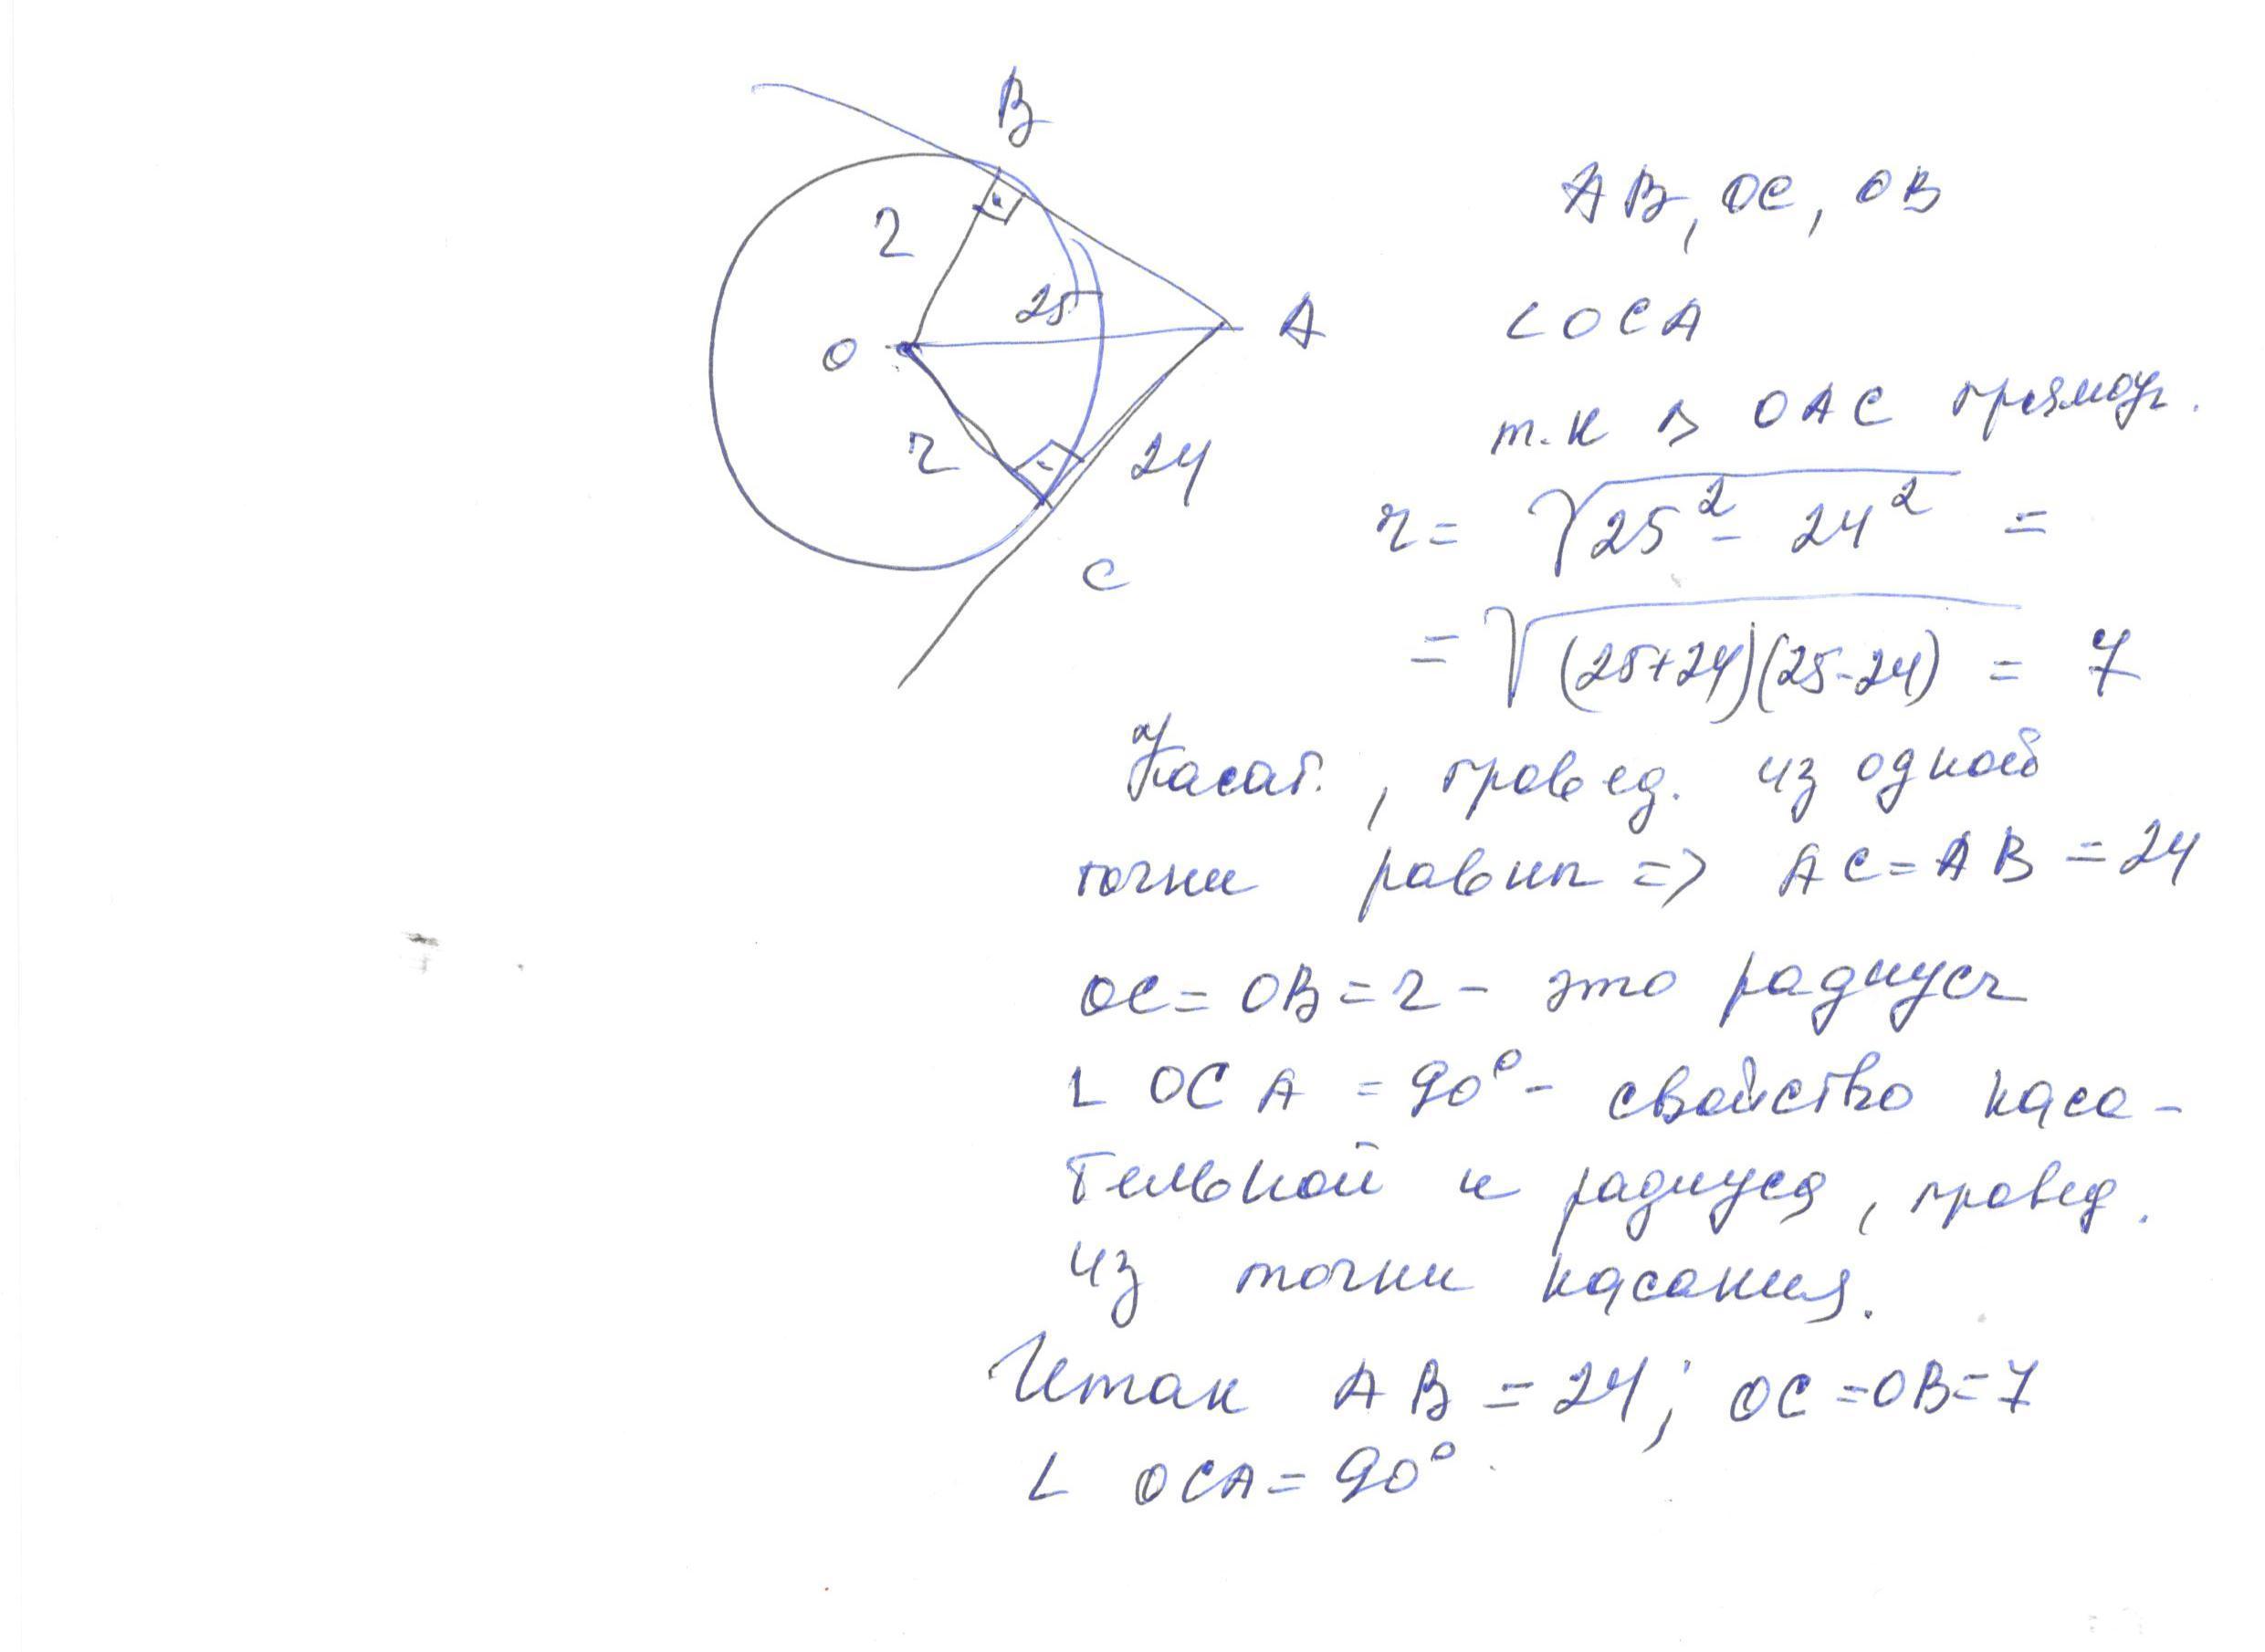 B
AB, OC, OB
r
25
A
O
∠OCA
т.к △ OAC прямоуг.
r
24
r = √25² - 24² =
C
= √(25+24)(25-24) = 7
Касат., провед. из одной
точки равны => AC = AB = 24
OC = OB = r - это радиусы
∠ OCA = 90° - свойство каса-
тельной и радиуса, провед.
из точки касания.
Итак AB = 24; OC = OB = 7
∠ OCA = 90°.